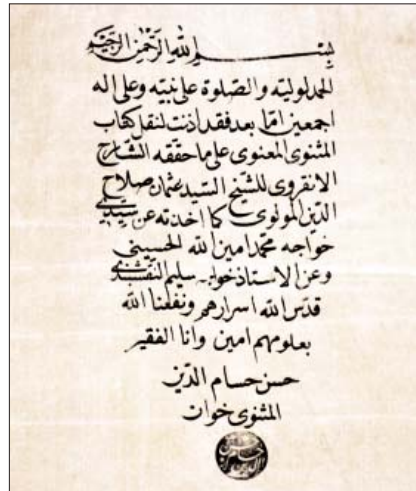 بسم الله الرحمن الرحيم
الحمد لوليه والصلوة على نبيه وعلى اله
اجمعين اما بعد فقد اذنت لنقل كتاب
المثنوى المعنوى على ما حققه الشارح
الانقروى للشيخ السيد عثمان صلاح
الدين المولوى كما اخذته عن سيدى
خواجه محمد امين الله الحسينى
وعن الاستاذ خواجه سليم النقشبندى
قدس الله اسرارهم ونفعنا الله
بعلومهم امين وانا الفقير
حسن حسام الدين
المثنوى خوان